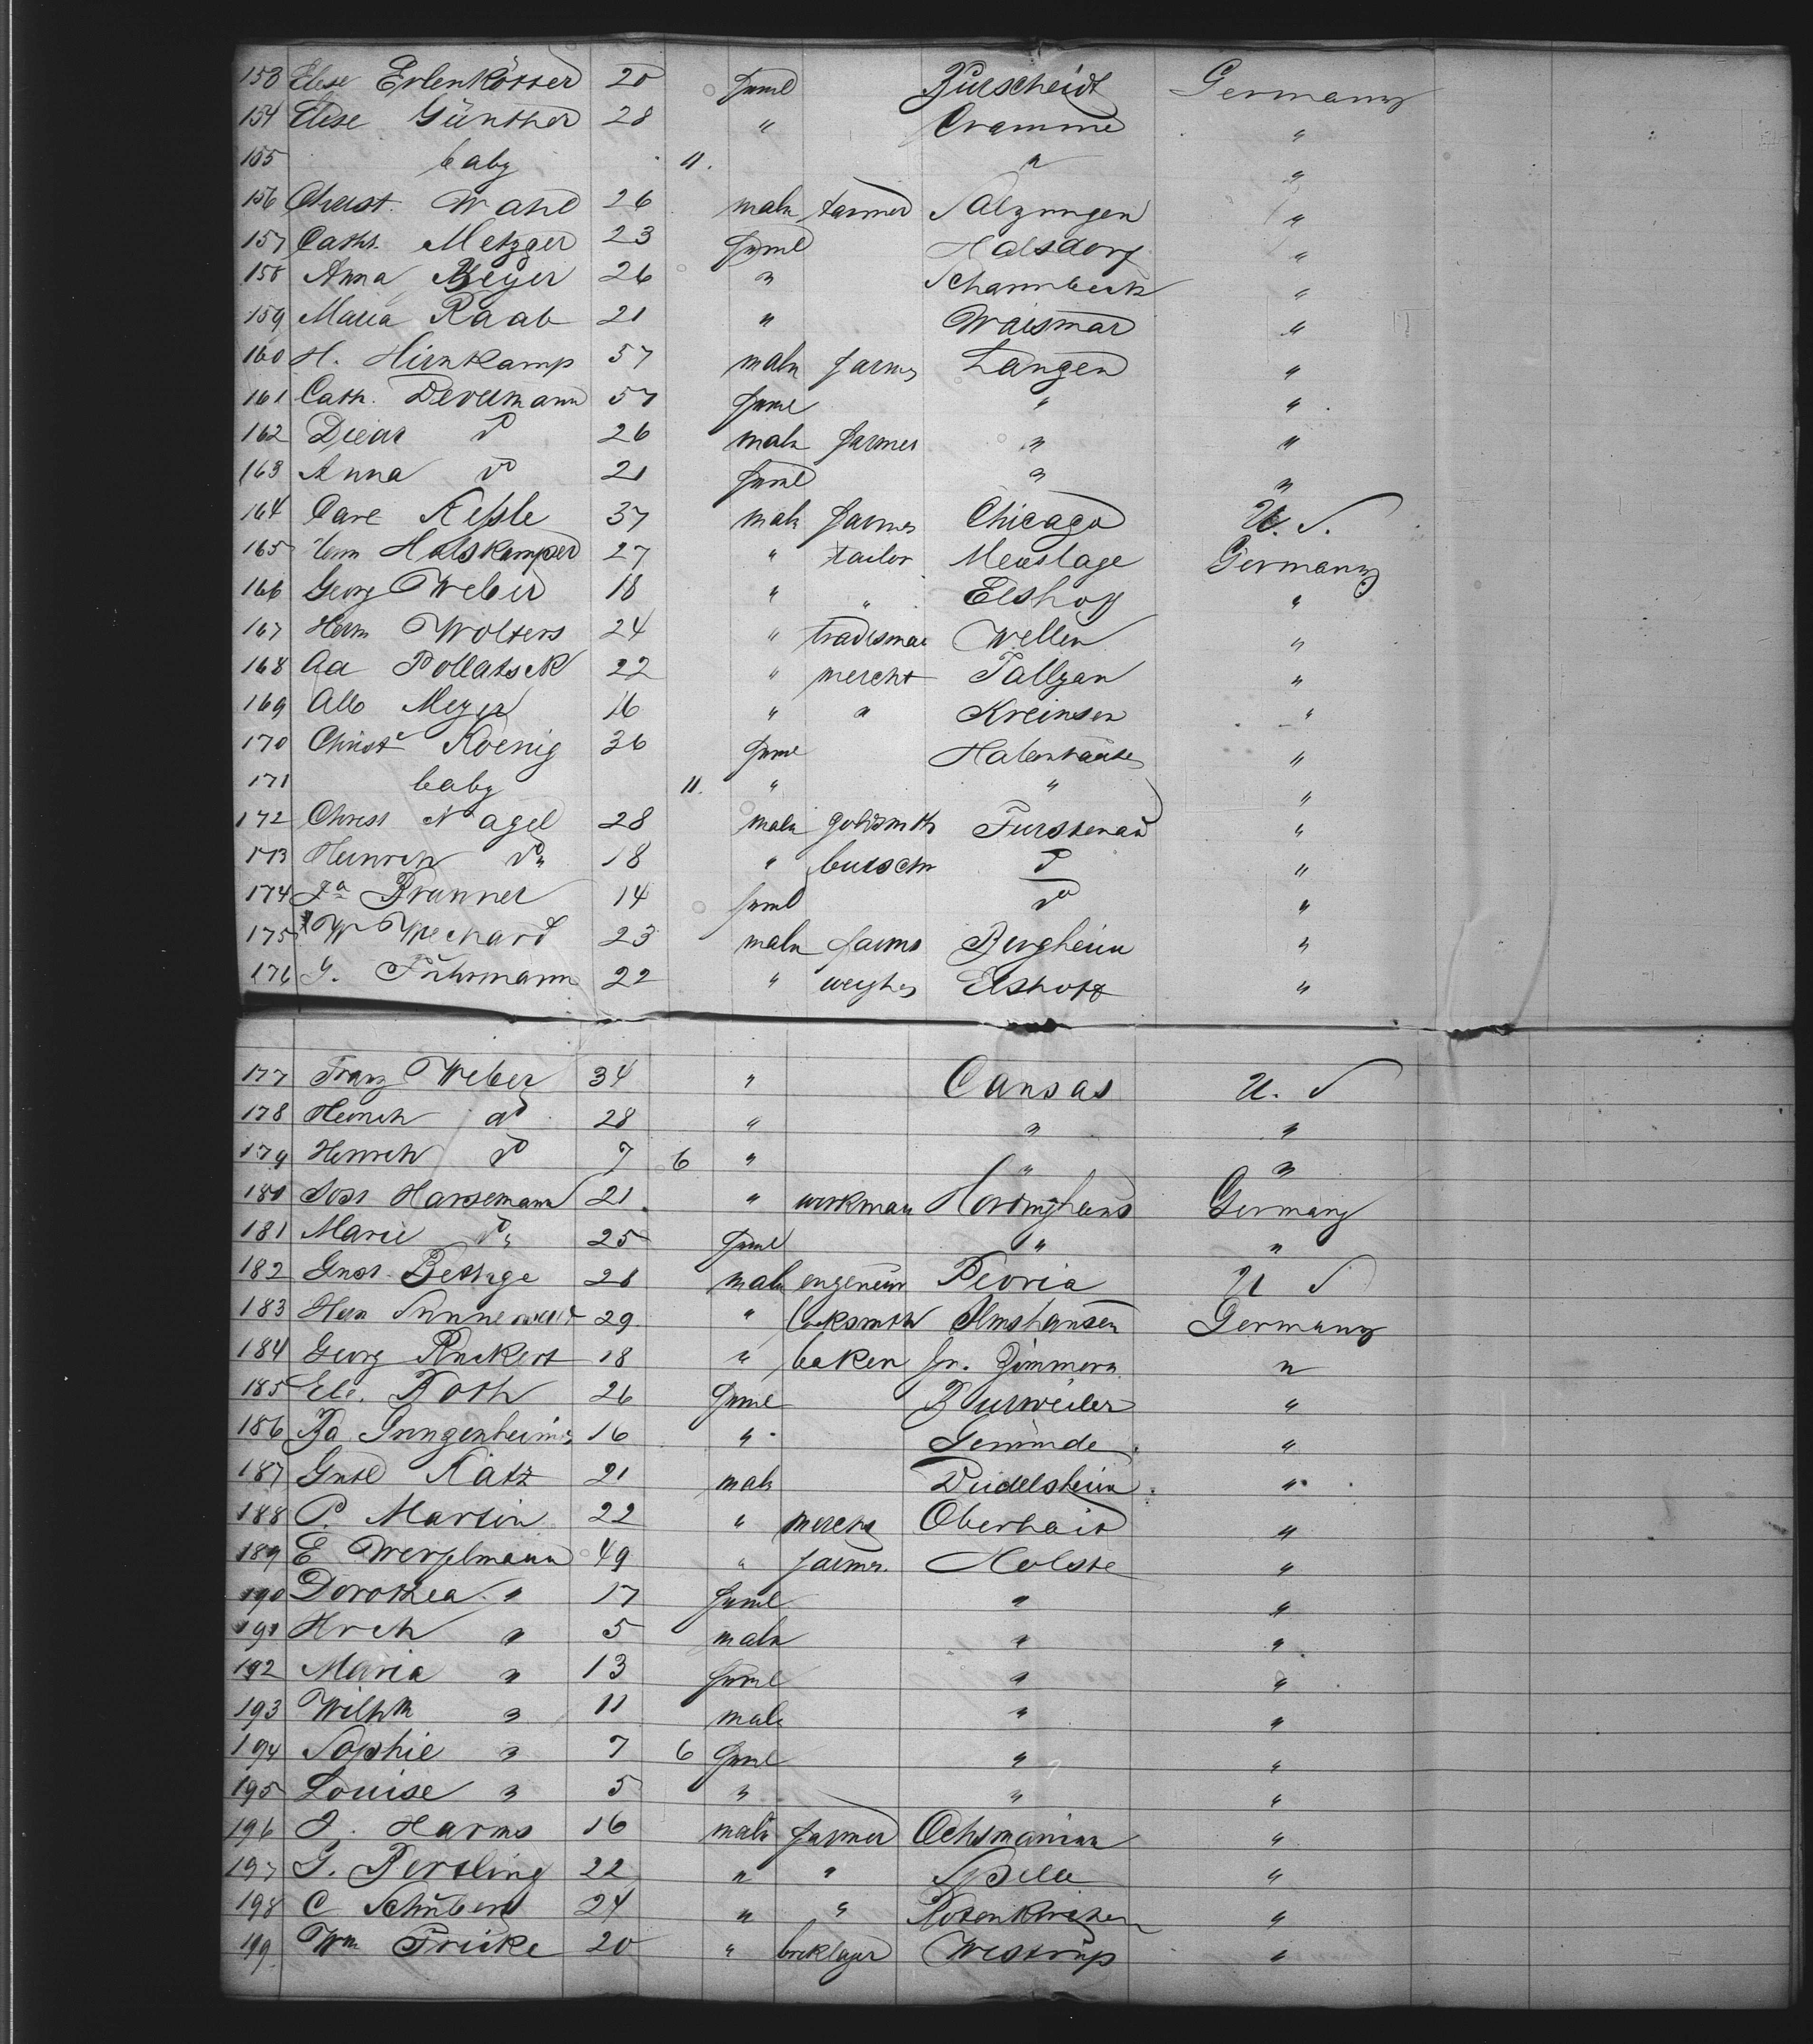 153 Elise Erlenkötter 20 feml Burscheidt Germany
154 Elise Günther 28 " Cramme "
155 baby 11. " "
156 Christ. Wahl 26 male farmer Salzungen "
157 Cathr. Metzger 23 feml Halsdorf "
158 Anna Meyer 26 " Scharmbeck "
159 Maria Raab 21 " Waismar "
160 H. Hunkamp 57 male farmer Langen "
161 Cath. Devermann 57 feml " "
162 Diedr do 26 male farmer " "
163 Anna do 21 feml " "
164 Carl Keßle 37 male farmer Chicago U. S.
165 Herm Holskamper 27 " tailor Menslage Germany
166 Georg Weber 18 " " Elshoff "
167 Herm Wolters 24 " tradesman Wellen "
168 Aa Pollatsek 22 " mercht Tallyan "
169 Alb Meyer 16 " " Kreinsen "
170 Christe Koenig 36 feml "
171 baby 11. " " "
172 Christ Nagel 28 male goldsmth Furstenau "
173 Heinrch do " 18 " butschr do "
174 Ja Brunner 14 feml do "
175 W Wechard 23 male farmr Bergheim "
176 G. Fuhrmann 22 " Elshoff "
177 Franz Weber 34 " Cansas U. S
178 Heinrch do 28 " " "
179 Heinrch do 7 6 " " "
180 Josr Harsemann 21 " workman Hordinghaus Germany
181 Marie do " 25 feml " "
182 Gust. Bethge 28 male engeneur Peoria U S
183 Herm 29 " locksmith Almshausen Germany
184 Georg Ruckert 18 " baker Gr. Zimmern "
185 Ele. Roth 26 feml Burweiler "
186 Ba Gungenheimer 16 " Gemünde "
187 Gust Katz 21 male Dudelsheim "
188 P. Martin 22 " mercht Oberhaid "
189 E Werplmann 49 " farmr. Holste "
190 Dorothea " 17 feml " "
191 Hrch " 5 male " "
192 Maria " 13 feml " "
193 Wilhm " 11 male " "
194 Sophie " 7 6 feml " "
195 Louise " 5 " " "
196 J. Harms 16 male farmer Ochsmanien "
197 G. Bertling 22 " " Spelle "
198 C Schubert 24 " " Rotenkirchen "
199 Wm Fricke 20 " bricklayer Westrup "